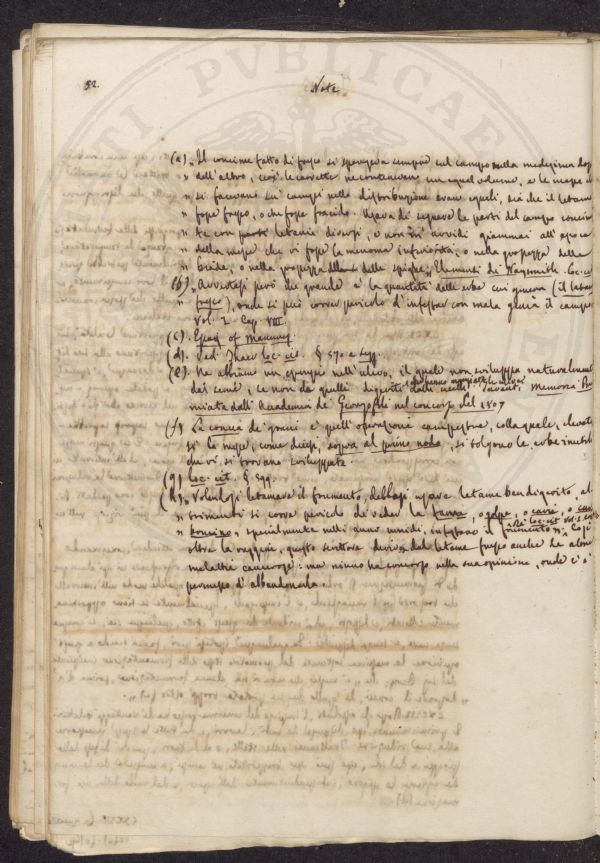 52.
Note
(a) „ Il concime fatto di fresco si spargeva sempre sul campo nella medesima dop
„ dell'altro, così le carrette ne contenevan un egual volume, e le
„ si facevano su' campi nella distribuzione eran eguali, sia che il letame
„ fosse fresco, o che fosse fracido. Usava di segnare le parti del campo concim
„ te con letame diversi, e non mi avvidi giammai all'epoca
„ della messe che vi fosse la menoma inferiorità, o nella grossezza della
„ biade, o nella grossezza delle spighe „ Elementi di Naysmith loc. ci
(b) „ Avvertasi però che grande è la quantità delle erbe cui genera (il letame
„ fresco), onde si può correr pericolo d'infestar con mala genia il campo
Vol. I. Cap. VIII.
(c). Essay of Manuring
(d). Ved. Thaer loc. cit. § 570 e seg.
(e). Ne abbiamo un esempio nell'ulivo, il quale non sviluppa naturalmente
dai semi, se non da quelli digeriti dalli Tavanti, Memoria Pre
miata dall'Accademia de' Georgofili nel concorso del 1807
(f) La concia de' grani è quell'operazione campestre, colla quale, elevate
si le messe, come dicesi, sopra al primo nodo, si tolgono le erbe inutili
che vi si trovano sviluppate.
(g) loc. cit. § 599.
(h) „ Volendosi letamare il frumento, debbasi usare letame ben digerito, al
„ trimenti si corre pericolo di veder la , o golpe, o carie, o car
„ boncino, specialmente negli anni umidi, infestare il frumento „. Così
oltre la ruggine, questo scrittore deriva dal letame fresco anche le altre
malattie cancerose: ma niuno ha concorso nella sua opinione, onde ci è
permesso d'abbandonarla.